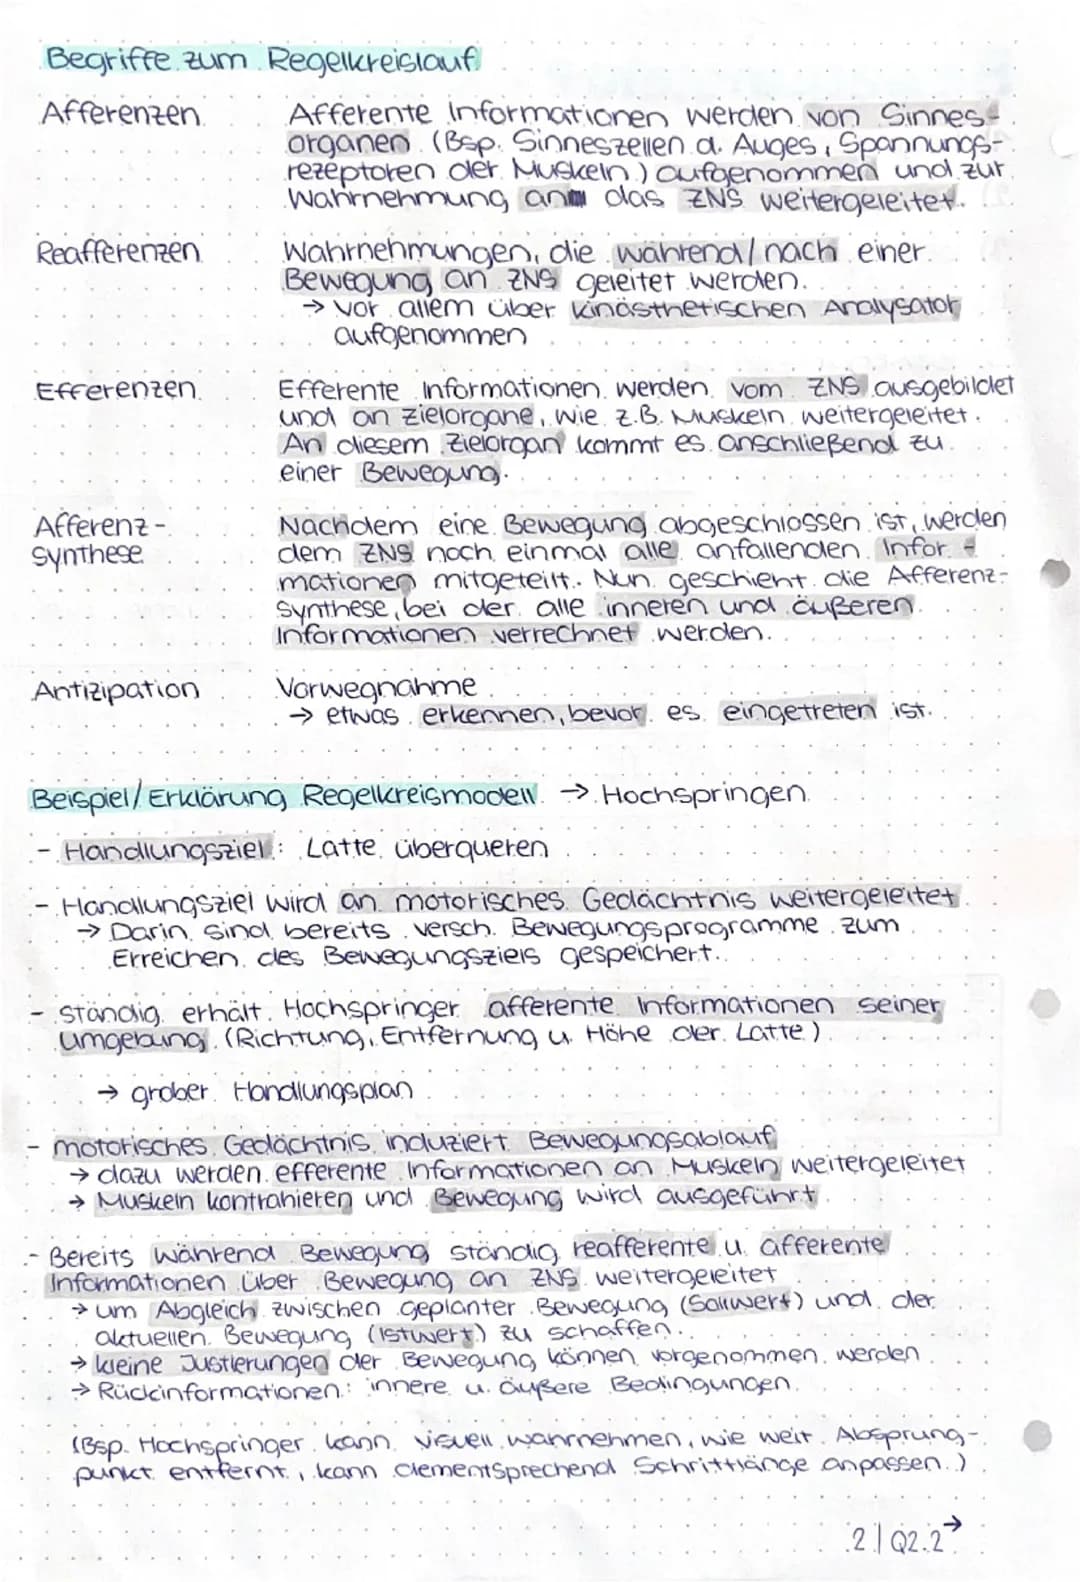 Begriffe zum Regelkreislauf
Afferenzen Afferente Informationen werden von Sinnes-
organen (Bsp. Sinneszellen d. Auges, Spannungs-
rezeptoren der Muskeln) aufgenommen und zur
Wahrnehmung an das ZNS weitergeleitet.
Reafferenzen Wahrnehmungen, die während/nach einer
Bewegung an ZNS geleitet werden.
→ vor allem über kinästhetischen Analysator
aufgenommen
Efferenzen Efferente Informationen werden vom ZNS ausgebildet
und an Zielorgane, wie z.B. Muskeln weitergeleitet.
An diesem Zielorgan kommt es anschließend zu
einer Bewegung.
Afferenz- Nachdem eine Bewegung abgeschlossen ist, werden
synthese dem ZNS noch einmal alle anfallenden Infor-
mationen mitgeteilt. Nun geschieht die Afferenz-
synthese, bei der alle inneren und äußeren
Informationen verrechnet werden.
Antizipation Vorwegnahme
→ etwas erkennen, bevor es eingetreten ist.
Beispiel/Erklärung Regelkreismodell → Hochspringen
- Handlungsziel: Latte überqueren
- Handlungsziel wird an motorisches Gedächtnis weitergeleitet
→ Darin sind bereits versch. Bewegungsprogramme zum
Erreichen des Bewegungsziels gespeichert.
- ständig erhält Hochspringer afferente Informationen seiner
Umgebung (Richtung, Entfernung u. Höhe der Latte)
→ grober Handlungsplan
- motorisches Gedächtnis induziert Bewegungsablauf
→ dazu werden efferente Informationen an Muskeln weitergeleitet
→ Muskeln kontrahieren und Bewegung wird ausgeführt
- Bereits während Bewegung ständig reafferente u. afferente
Informationen über Bewegung an ZNS weitergeleitet
→ um Abgleich zwischen geplanter Bewegung (Sollwert) und der
aktuellen Bewegung (Istwert) zu schaffen.
→ kleine Justierungen der Bewegung können vorgenommen werden
→ Rückinformationen: innere u. äußere Bedingungen
(Bsp. Hochspringer kann visuell wahrnehmen, wie weit Absprung-
punkt entfernt, kann dementsprechend Schrittlänge anpassen.)
2 | Q2.2 →